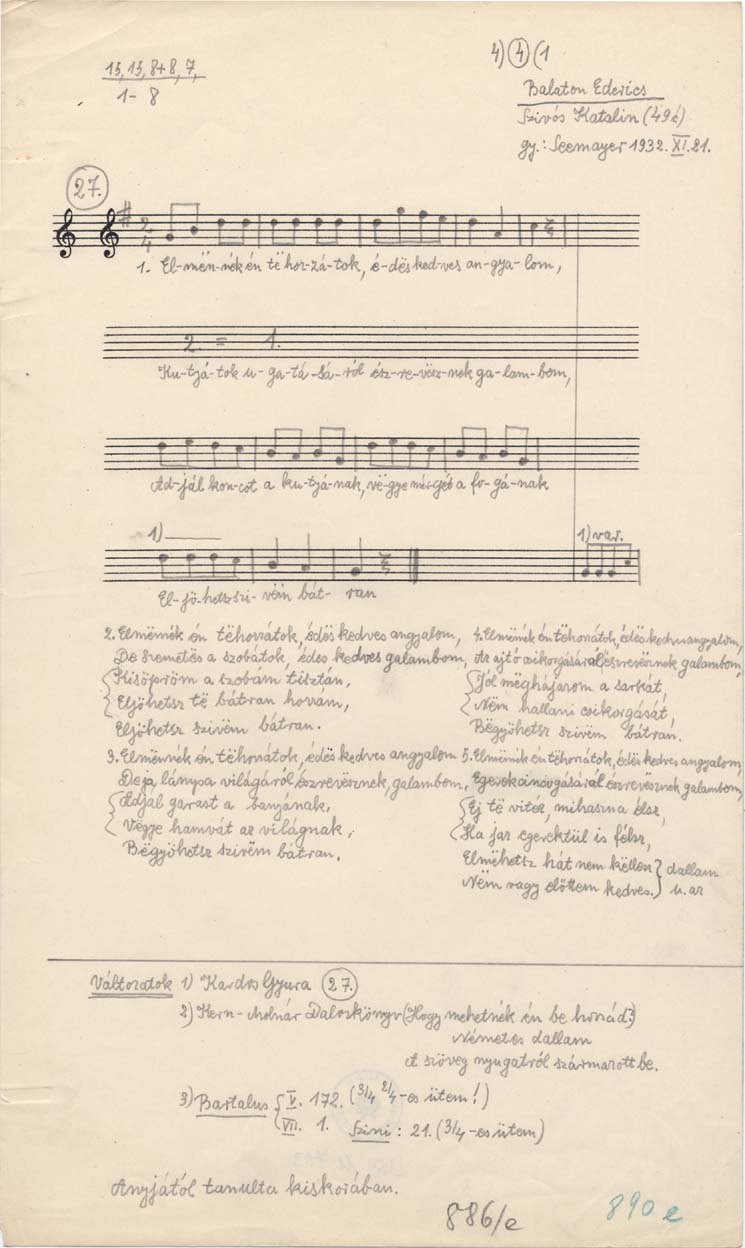 15, 15, 8+8, 7,
1- 8
4) (4) (1
Balaton Ederics
Szivós Katalin (49é)
gy.: Seemayer 1932. XI. 21.
27.
2/4
1. El-mën-nék én të hoz-zá-tok, é-dës ked-ves an-gya-lom,
2. = 1.
Ku-tyá-tok u-ga-tá-sá-ról ész-re-vësz-nek ga-lam-bom,
Ad-jál kon-cot a ku-tyá-nak, vë-gye mér-gét a fo-gá-nak
1)
1) var.
El-jö-hetsz szi-vëm bát-ran
2. Elmënnék én tëhozzátok, édës kedves angyalom,
De szemetës a szobátok, édes kedves galambom,
Kisöpröm a szobám tisztán,
Eljöhetsz të bátran hozzám,
Eljöhetsz szivëm bátran.
3. Elmënnék én tëhozzátok, édës kedves angyalom
De a lámpa világáról észrevësznek, galambom,
Adjál garast a banyának,
Vëgye hamvát az világnak,
Bëgyöhetsz szivëm bátran.
4. Elmënnék én tëhozzátok, édës kedves angyalom,
Az ajtó csikorgásáról észrevësznek galambom,
Jól mëghájazom a sarkát,
Nëm hallani csikorgását,
Bëgyöhetsz szivëm bátran.
5. Elmënnék én tëhozzátok, édës kedves angyalom,
Egerek cincogásáról észrevësznek galambom,
Ej të vitéz, mihaszna élsz,
Ha jaz egerektül is félsz,
Elmëhetsz hát nem këllesz } dallam
Nëm vagy előttem kedves. } u.az
Változatok 1) Kardos Gyura (27.)
2) Kern-Molnár Daloskönyv (Hogy mehetnék én be hozzád?)
Németes dallam
A szöveg nyugatról származott be.
3) Bartalus { V. 172. (3/4 2/4-es ütem!)
VII. 1. Szini: 21. (3/4-es ütem)
Anyjától tanulta kiskorában.
886/e
890 e